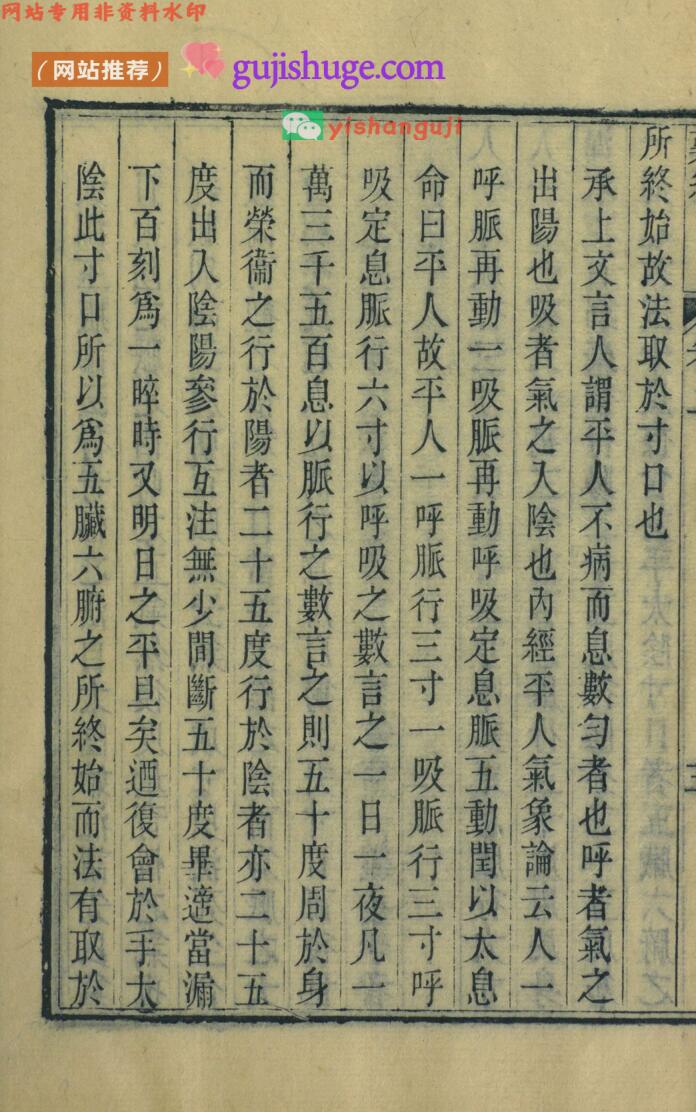 网站专用非资料水印
（网站推荐）
gujishuge.com
yishanguji
所終始故法取於寸口也
承上文言人謂平人不病而息數勻者也呼者氣之
出陽也吸者氣之入陰也內經平人氣象論云人一
呼脈再動一吸脈再動呼吸定息脈五動閏以太息
命曰平人故平人一呼脈行三寸一吸脈行三寸呼
吸定息脈行六寸以呼吸之數言之一日一夜凡一
萬三千五百息以脈行之數言之則五十度周於身
而榮衞之行於陽者二十五度行於陰者亦二十五
度出入陰陽參行互注無少間斷五十度畢適當漏
下百刻爲一晬時又明日之平旦矣迺復會於手太
陰此寸口所以爲五臟六腑之所終始而法有取於